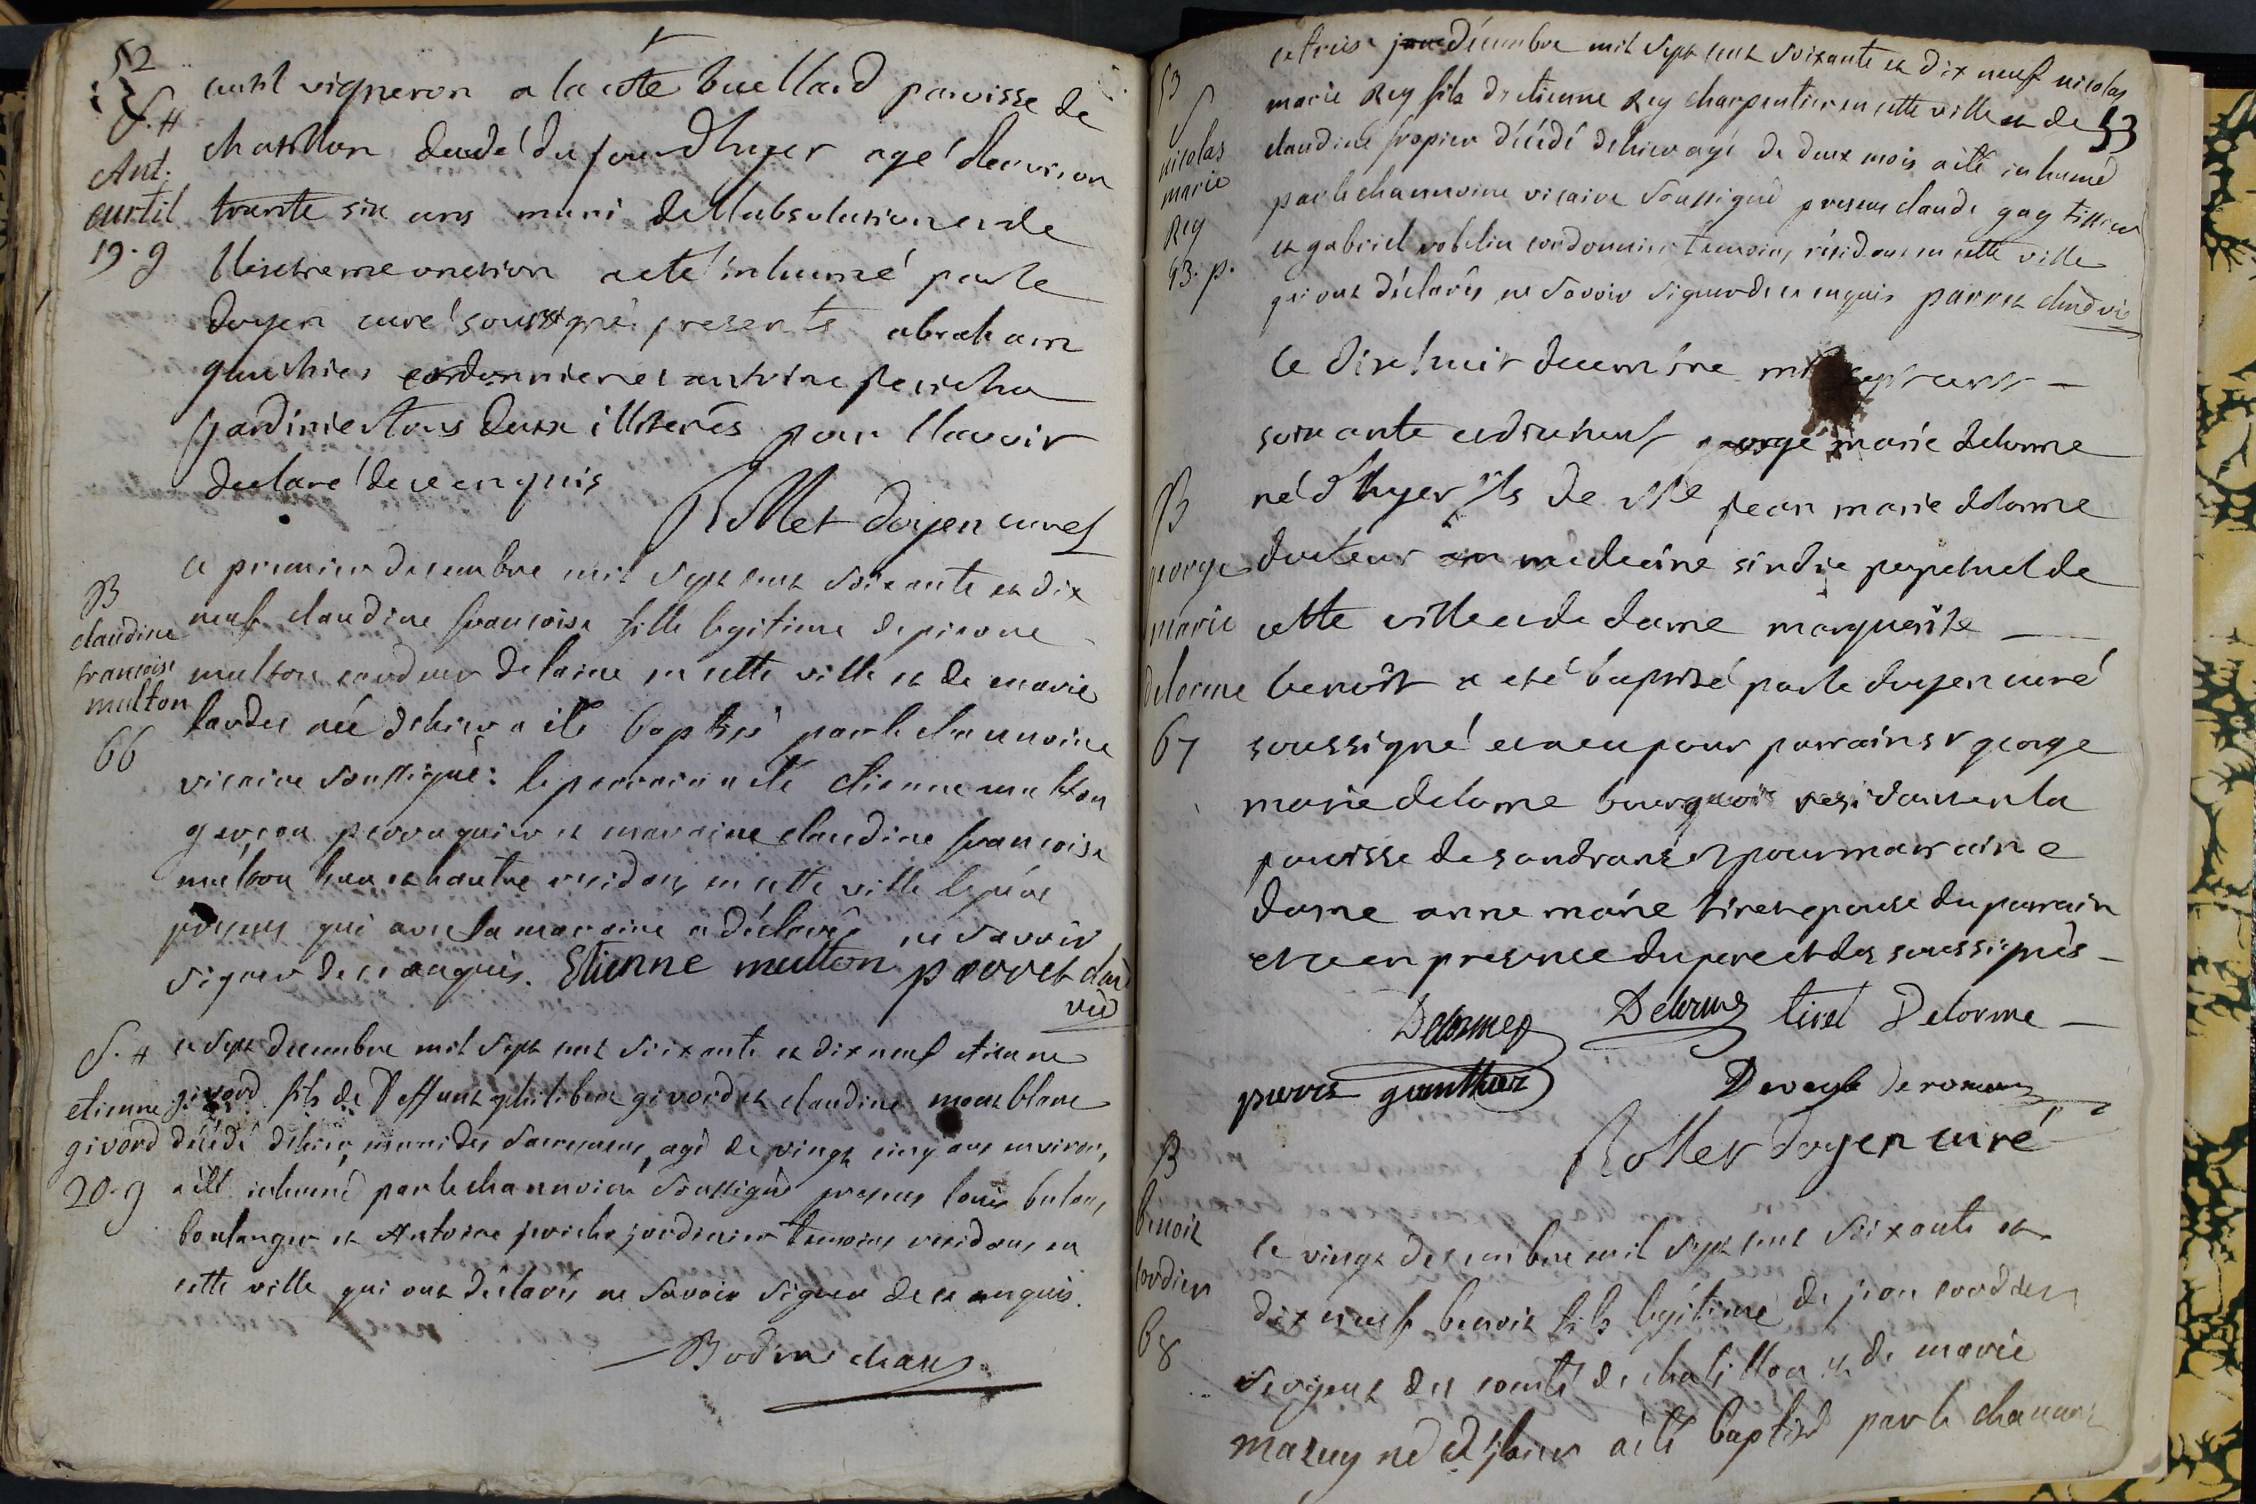 52
curtil vigneron a la cote buellard paroisse de
chatillon decedé du jour d'hyer agé d'environ
trante six ans muni de l'absolution et de
l'extreme onction a eté inhumé par le
doyen curé soussigné presents abraham
gauthier cordonnier et antoine pericha
jardinier tous deux illiterés pour l'avoir
declaré de ce enquis
Rollet doyen curé
S. H
Ant.
curtil
19. g
ce premier decembre mil sept cent soixante et dix
neuf claudine francoise fille legitime de pierre
multon cardeur de laine en cette ville et de marie
née dehier a été baptisé par le channoine
vicaire soussigné: le parrain a été etienne multon
garçon perruquier et marraine claudine francoise
multon l'un et l'autre residans en cette ville le père
present qui avec la maraine a déclaré ne savoir
signer de ce enquis. Etienne multon parret chan
vic
B
claudine
francoise
multon
66
ce sept decembre mil sept cent soixante et dix neuf etienne
givord fils de deffunt philibert givord et claudine montblanc
décédé dehier, muni des sacremens, agé de vingt cinq ans environ,
a été inhumé par le channoine soussigné presens louis
boulanger et Antoine pericha jardinier temoins residans en
cette ville qui ont déclarés ne savoir signer de ce enquis.
Bodin chan
S. H
etienne
givord
20. g
53
ce treise decembre mil sept cent soixante et dix neuf nicolas
marie Rey fils d'etienne Rey charpentier en cette ville et de
claudine frapier décédé dehier agé de deux mois a été inhumé
par le channoine vicaire soussigné presens claude gay tissier
et gabriel cordonnier temoins, résidans en cette ville
qui ont déclarés ne savoir signer de ce enquis parret chan vic
53
S
nicolas
marie
Rey
93. p.
ce dixhuit decembre mil sept cent
soixante et dix neuf george marie delorme
né d'hyer fils de sr jean marie delorme
docteur en médecine sindic perpetuel de
cette ville et de dame marguerite
benoit a eté baptisé par le doyen curé
soussigné et a eu pour parrain sr george
marie delorme bourgeois residant en la
paroisse de sandrans et pour marraine
dame anne marie tiret epouse du parrain
et ce en presence du pere et des soussignés
Delorme Delorme tiret Delorme
pierre gauthier Deveyle de romans
Rollet doyen curé
B
george
marie
delorme
67
ce vingt decembre mil sept cent soixante et
dix neuf benoit fils legitime de jean cordier
sergent du comté de chatillon et de marie
mazuy né dehier a été baptisé par le channoine
B
benoit
cordier
68